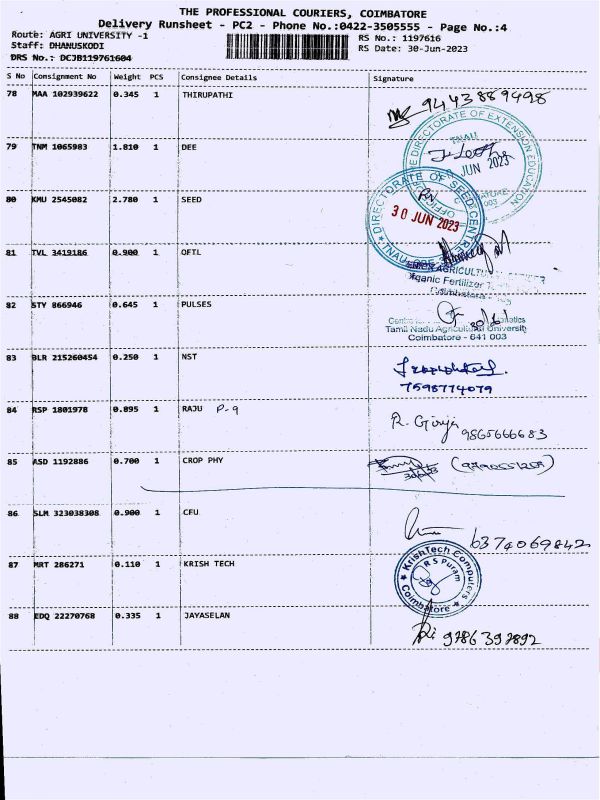 THE PROFESSIONAL COURIERS, COIMBATORE
Delivery Runsheet - PC2 - Phone No.:0422-3505555 - Page No.:4
Route: AGRI UNIVERSITY -1
RS No.: 1197616
Staff: DHANUSKODI
RS Date: 30-Jun-2023
DRS No.: DCJB119761604
S No Consignment No Weight PCS Consignee Details Signature
78 MAA 102939622 0.345 1 THIRUPATHI
9443889498
DIRECTORATE OF EXTENSION EDUCATION
TNAU
79 TNM 1065983 1.810 1 DEE
JUN 2023
80 KMU 2545082 2.780 1 SEED
DIRECTORATE OF SEED CENTRE
30 JUN 2023
81 TVL 3419186 0.900 1 OFTL
Organic Fertilizer
Coimbatore
82 STY 866946 0.645 1 PULSES
Tamil Nadu Agricultural University
Coimbatore - 641 003
83 BLR 215260454 0.250 1 NST
7598774079
84 RSP 1801978 0.895 1 RAJU P-9
R. Girija
9865666683
85 ASD 1192886 0.700 1 CROP PHY
86 SLM 323038308 0.900 1 CFU
6374069842
87 MRT 286271 0.110 1 KRISH TECH
KrishTech Computers
R S Puram
Coimbatore
88 EDQ 22270768 0.335 1 JAYASELAN
9786392892